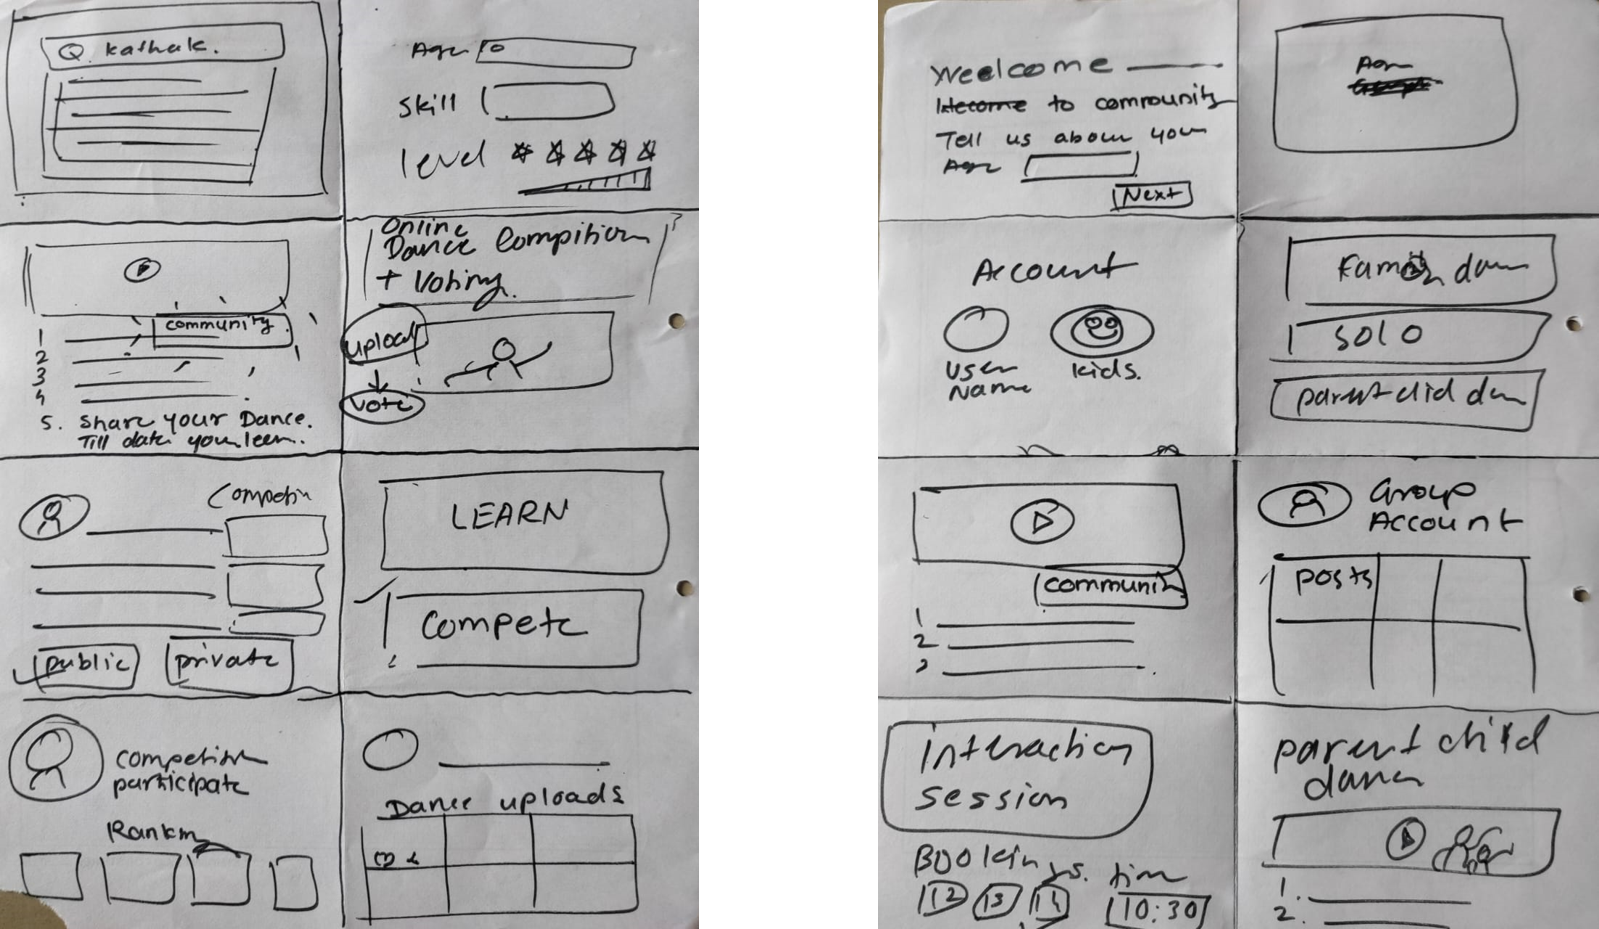 kathak.
Age 10
Skill
level
community
1
2
3
4
5. Share your Dance.
Till date you leern..
Online
Dance Compition
+ Voting.
upload
vote
Competin
public
private
LEARN
Compete
competition
participate
Ranking
Dance uploads
Weelcome
to community
Tell us about you
Age
Next
Age
Account
User
Name
kids.
Family dance
SOLO
parent child dance
community
1
2
3
Group
Account
posts
interaction
session
Bookings.
12
13
14
time
10:30
parent child
dance
1.
2.